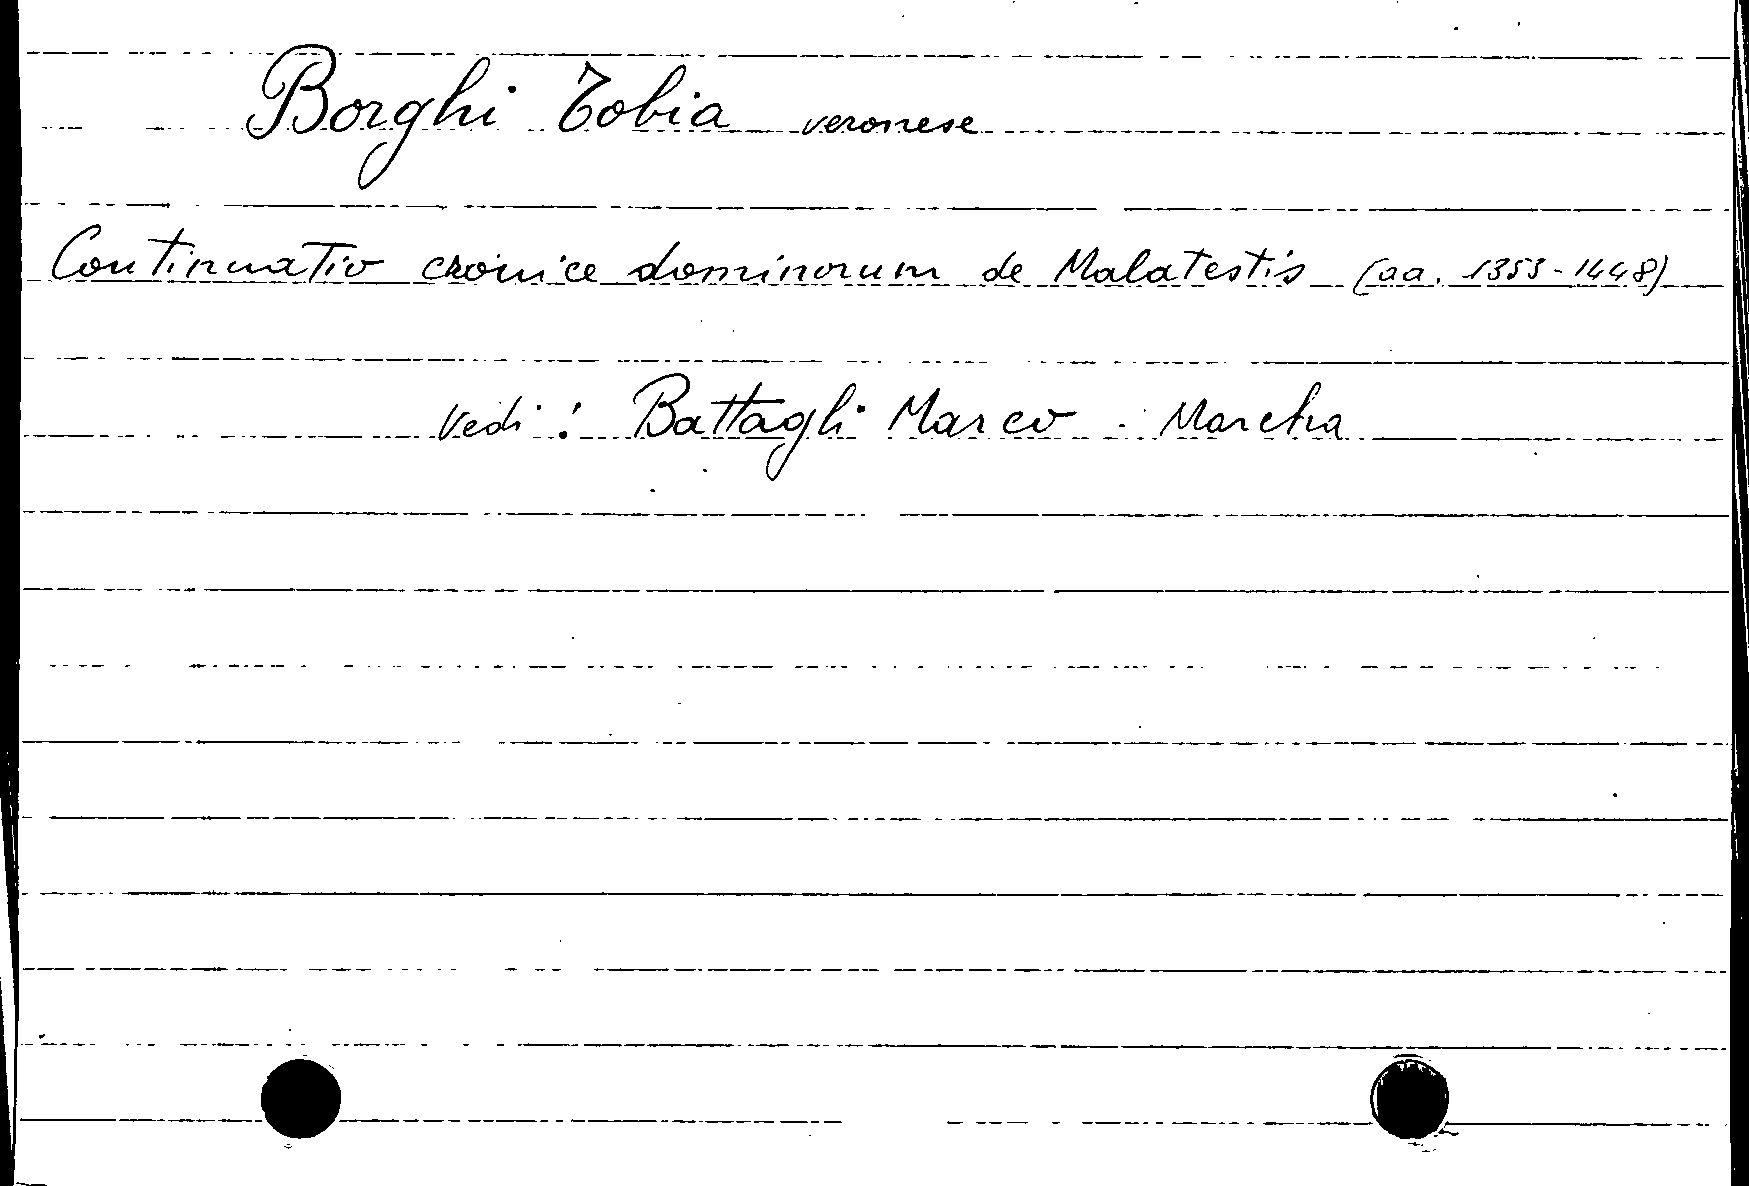 Borghi Tobia veronese
Continuatio cronice dominorum de Malatestis (aa. 1353-1448)
Vedi: Battagli Marco. Marcha